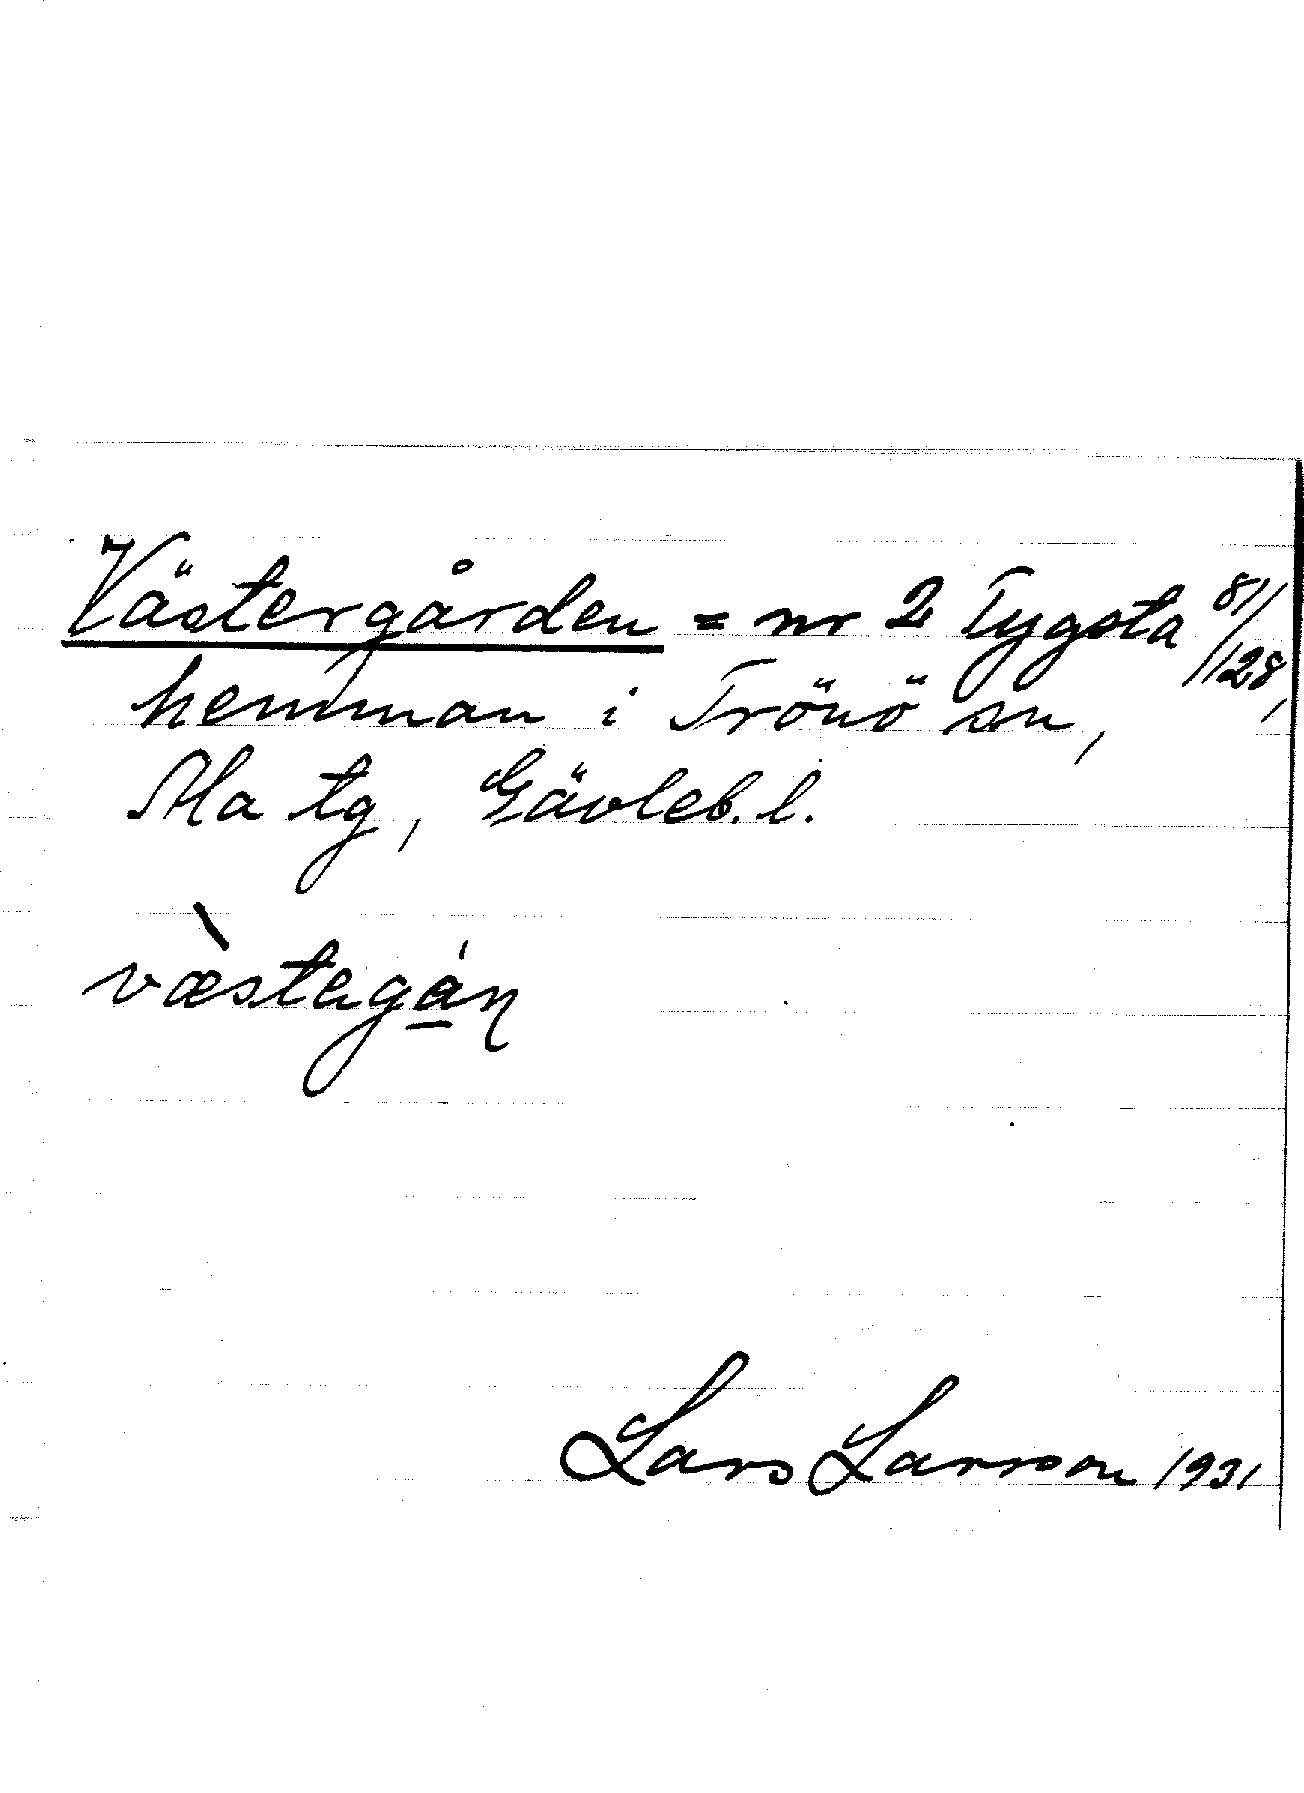 Västergården = nr 2 Tygsta 81/128,
hemman i Trönö sn,
Ala tg, Gävleb. l.
væ̀stagá̱ɳ
Lars Larsson 1931